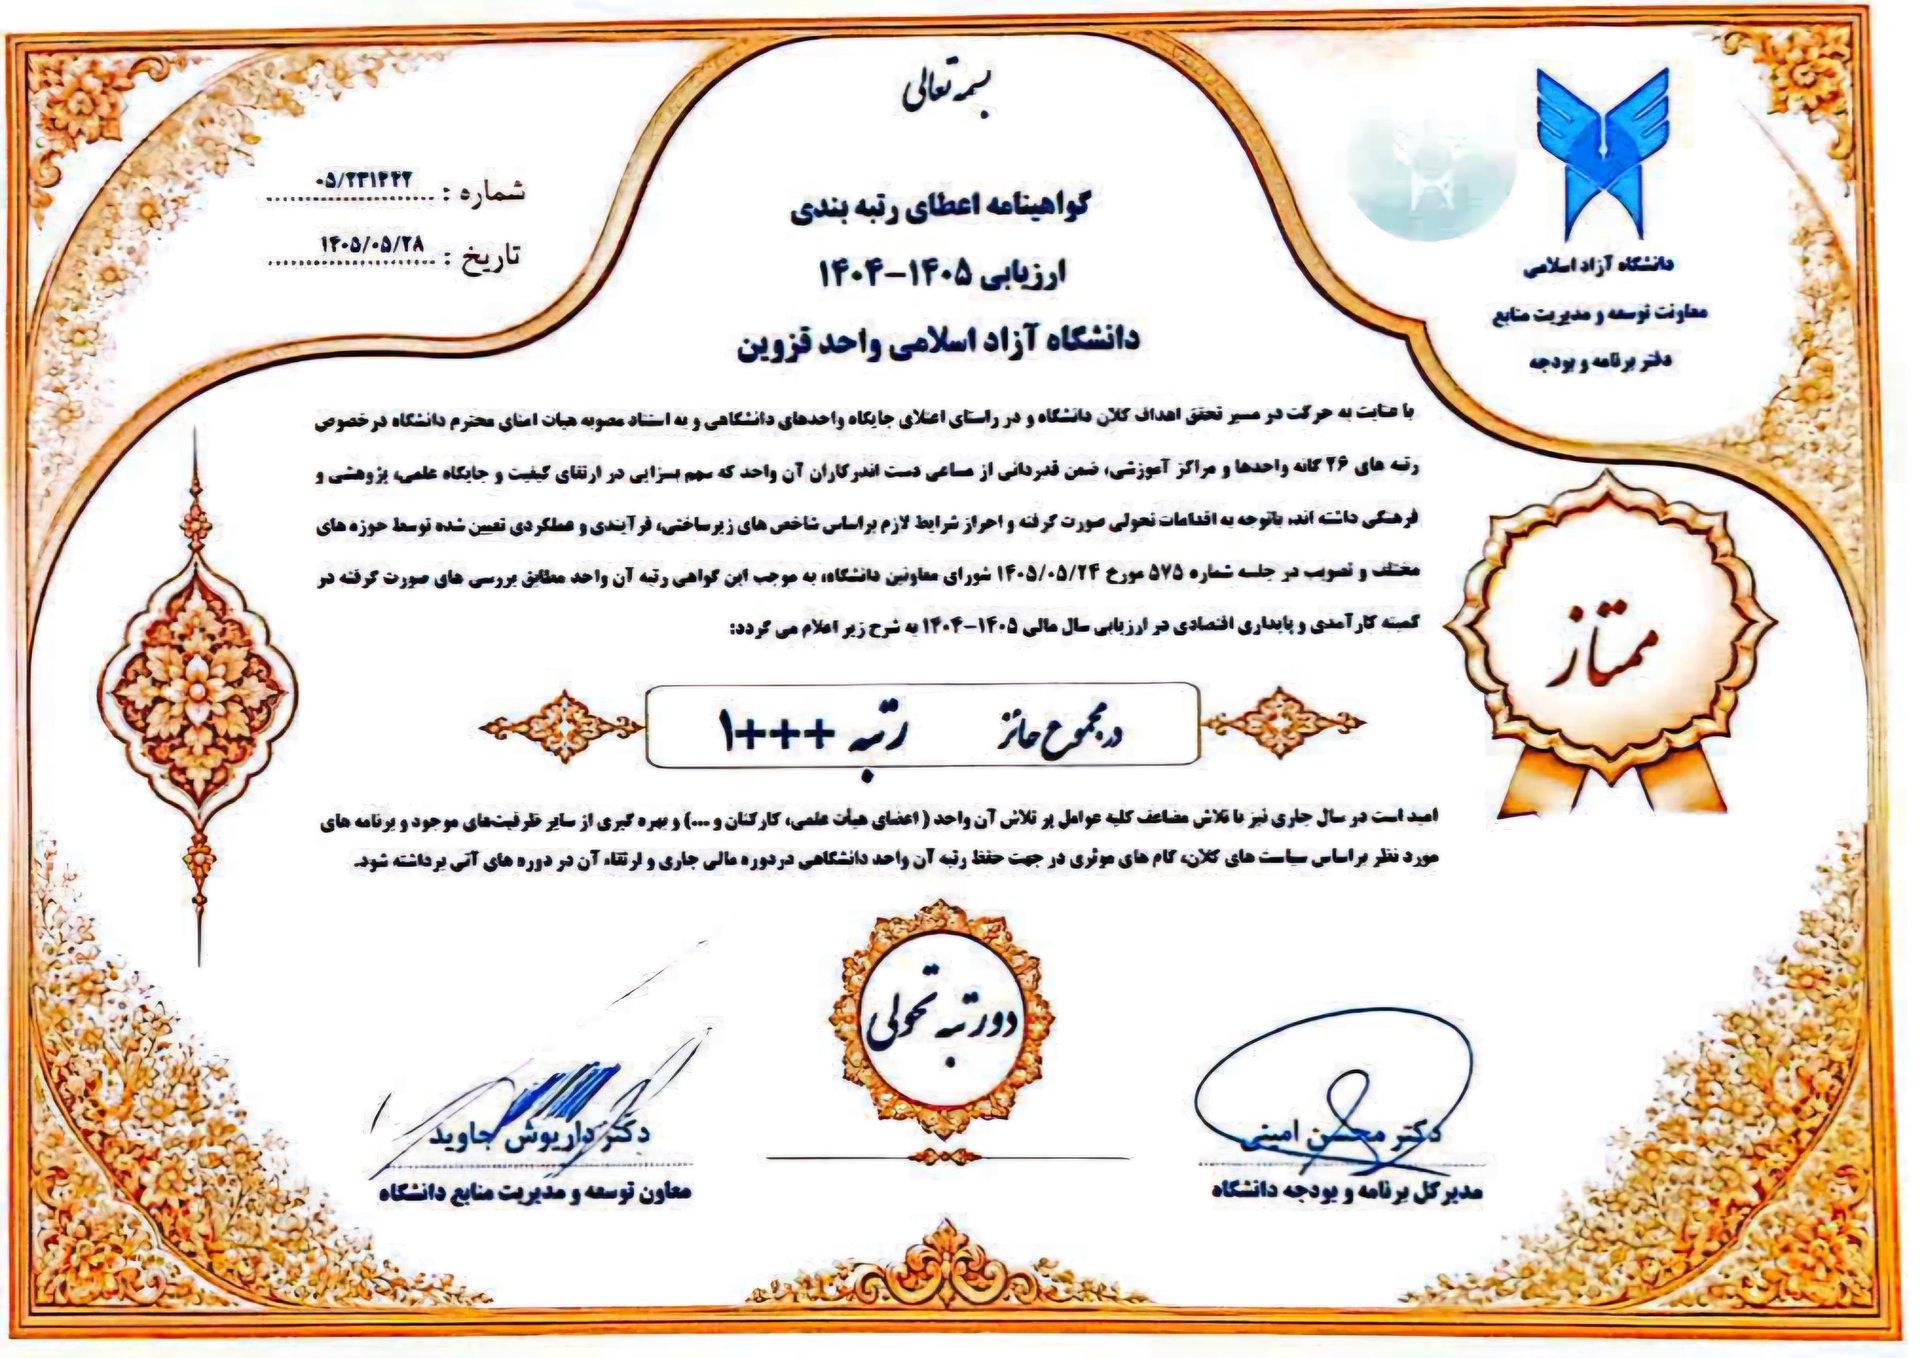 بسمه تعالی
دانشگاه آزاد اسلامی
معاونت توسعه و مدیریت منابع
دفتر برنامه و بودجه
شماره : ۰۵/۲۳۱۲۲۲
تاریخ : ۱۴۰۵/۰۵/۲۸
گواهینامه اعطای رتبه بندی
ارزیابی ۱۴۰۵-۱۴۰۴
دانشگاه آزاد اسلامی واحد قزوین
با عنایت به حرکت در مسیر تحقق اهداف کلان دانشگاه و در راستای اعتلای جایگاه واحدهای دانشگاهی و به استناد مصوبه هیات امنای محترم دانشگاه درخصوص
رتبه های ۲۶ گانه واحدها و مراکز آموزشی، ضمن قدردانی از مساعی دست اندرکاران آن واحد که سهم بسزایی در ارتقای کیفیت و جایگاه علمی، پژوهشی و
فرهنگی داشته اند، باتوجه به اقدامات تحولی صورت گرفته و احراز شرایط لازم براساس شاخص های زیرساختی، فرآیندی و عملکردی تعیین شده توسط حوزه های
مختلف و تصویب در جلسه شماره ۵۷۵ مورخ ۱۴۰۵/۰۵/۲۴ شورای معاونین دانشگاه، به موجب این گواهی رتبه آن واحد مطابق بررسی های صورت گرفته در
کمیته کارآمدی و پایداری اقتصادی در ارزیابی سال مالی ۱۴۰۵-۱۴۰۴ به شرح زیر اعلام می گردد:
ممتاز
در مجموع حائز رتبه +++۱
امید است در سال جاری نیز با تلاش مضاعف کلیه عوامل پر تلاش آن واحد ( اعضای هیأت علمی، کارکنان و ...) و بهره گیری از سایر ظرفیت‌های موجود و برنامه های
مورد نظر براساس سیاست های کلان، گام های موثری در جهت حفظ رتبه آن واحد دانشگاهی دردوره مالی جاری و ارتقاء آن در دوره های آتی برداشته شود.
دو رتبه تحولی
دکتر محسن امینی
مدیرکل برنامه و بودجه دانشگاه
دکتر داریوش جاوید
معاون توسعه و مدیریت منابع دانشگاه